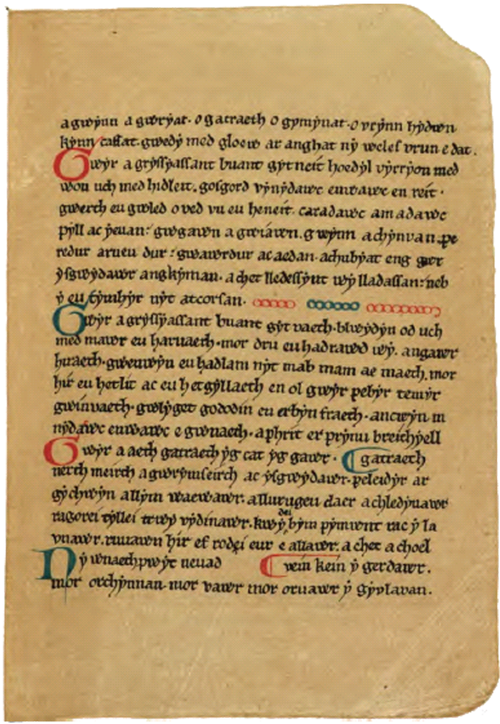 agwẏnn a gwrẏat. o gatraeth o gẏmẏnat. o vrẏnn hẏdwn
kẏnn caffat. gwedẏ med gloew ar anghat nẏ weles vrun e dat.
Gwẏr a grẏssẏassant buant gẏt neit hoedẏl vẏrrẏon med
won uch med hidleit. gosgord vẏnẏdawc enwawc en reit.
gwerth eu gwled o ved vu eu heneit. caradawc amadawc
pẏll ac ẏeuan. gwgawn a gwiawn. gwẏnn a chẏnvan. pe
redur arueu dur. gwawrdur ac aedan. achubẏat eng gawr
ẏsgwẏdawr angkẏman. a chet lledessẏnt wẏ lladassan. neb
ẏ eu tẏmhẏr nẏt atcorsan.
Gwẏr a grẏssẏassant buant gẏt vaeth. blwẏdẏn od uch
med mawr eu haruaeth. mor dru eu hadrawd wẏ. angawr
hiraeth. gwenwẏn eu hadlam nẏt mab mam ae maeth. mor
hir eu hetlit ac eu hetgẏllaeth en ol gwẏr pebẏr temẏr
gwinvaeth. gwlẏget gododin en erbẏn fraeth. ancwẏn m
ẏnẏdawc enwawc e gwnaeth. a phrit er prẏnu breithẏell
Gwẏr a aeth gatraeth ẏg cat ẏg gawr. gatraeth
nerth meirch a gwrẏmseirch ac ẏsgwẏdawr. peleidẏr ar
gẏchwẏn allẏm waewawr. allurugeu claer achledẏuawr.
ragorei tẏllei trwẏ vẏdinawr. kwẏdei bẏm pẏmwnt rac ẏ la
vnawr. ruuawn hir ef rodei eur e allawr. a chet a choel
Nẏ wnaethpwẏt neuad vein kein ẏ gerdawr.
mor orchẏnnan. mor vawr mor oruawr ẏ gẏvlavan.